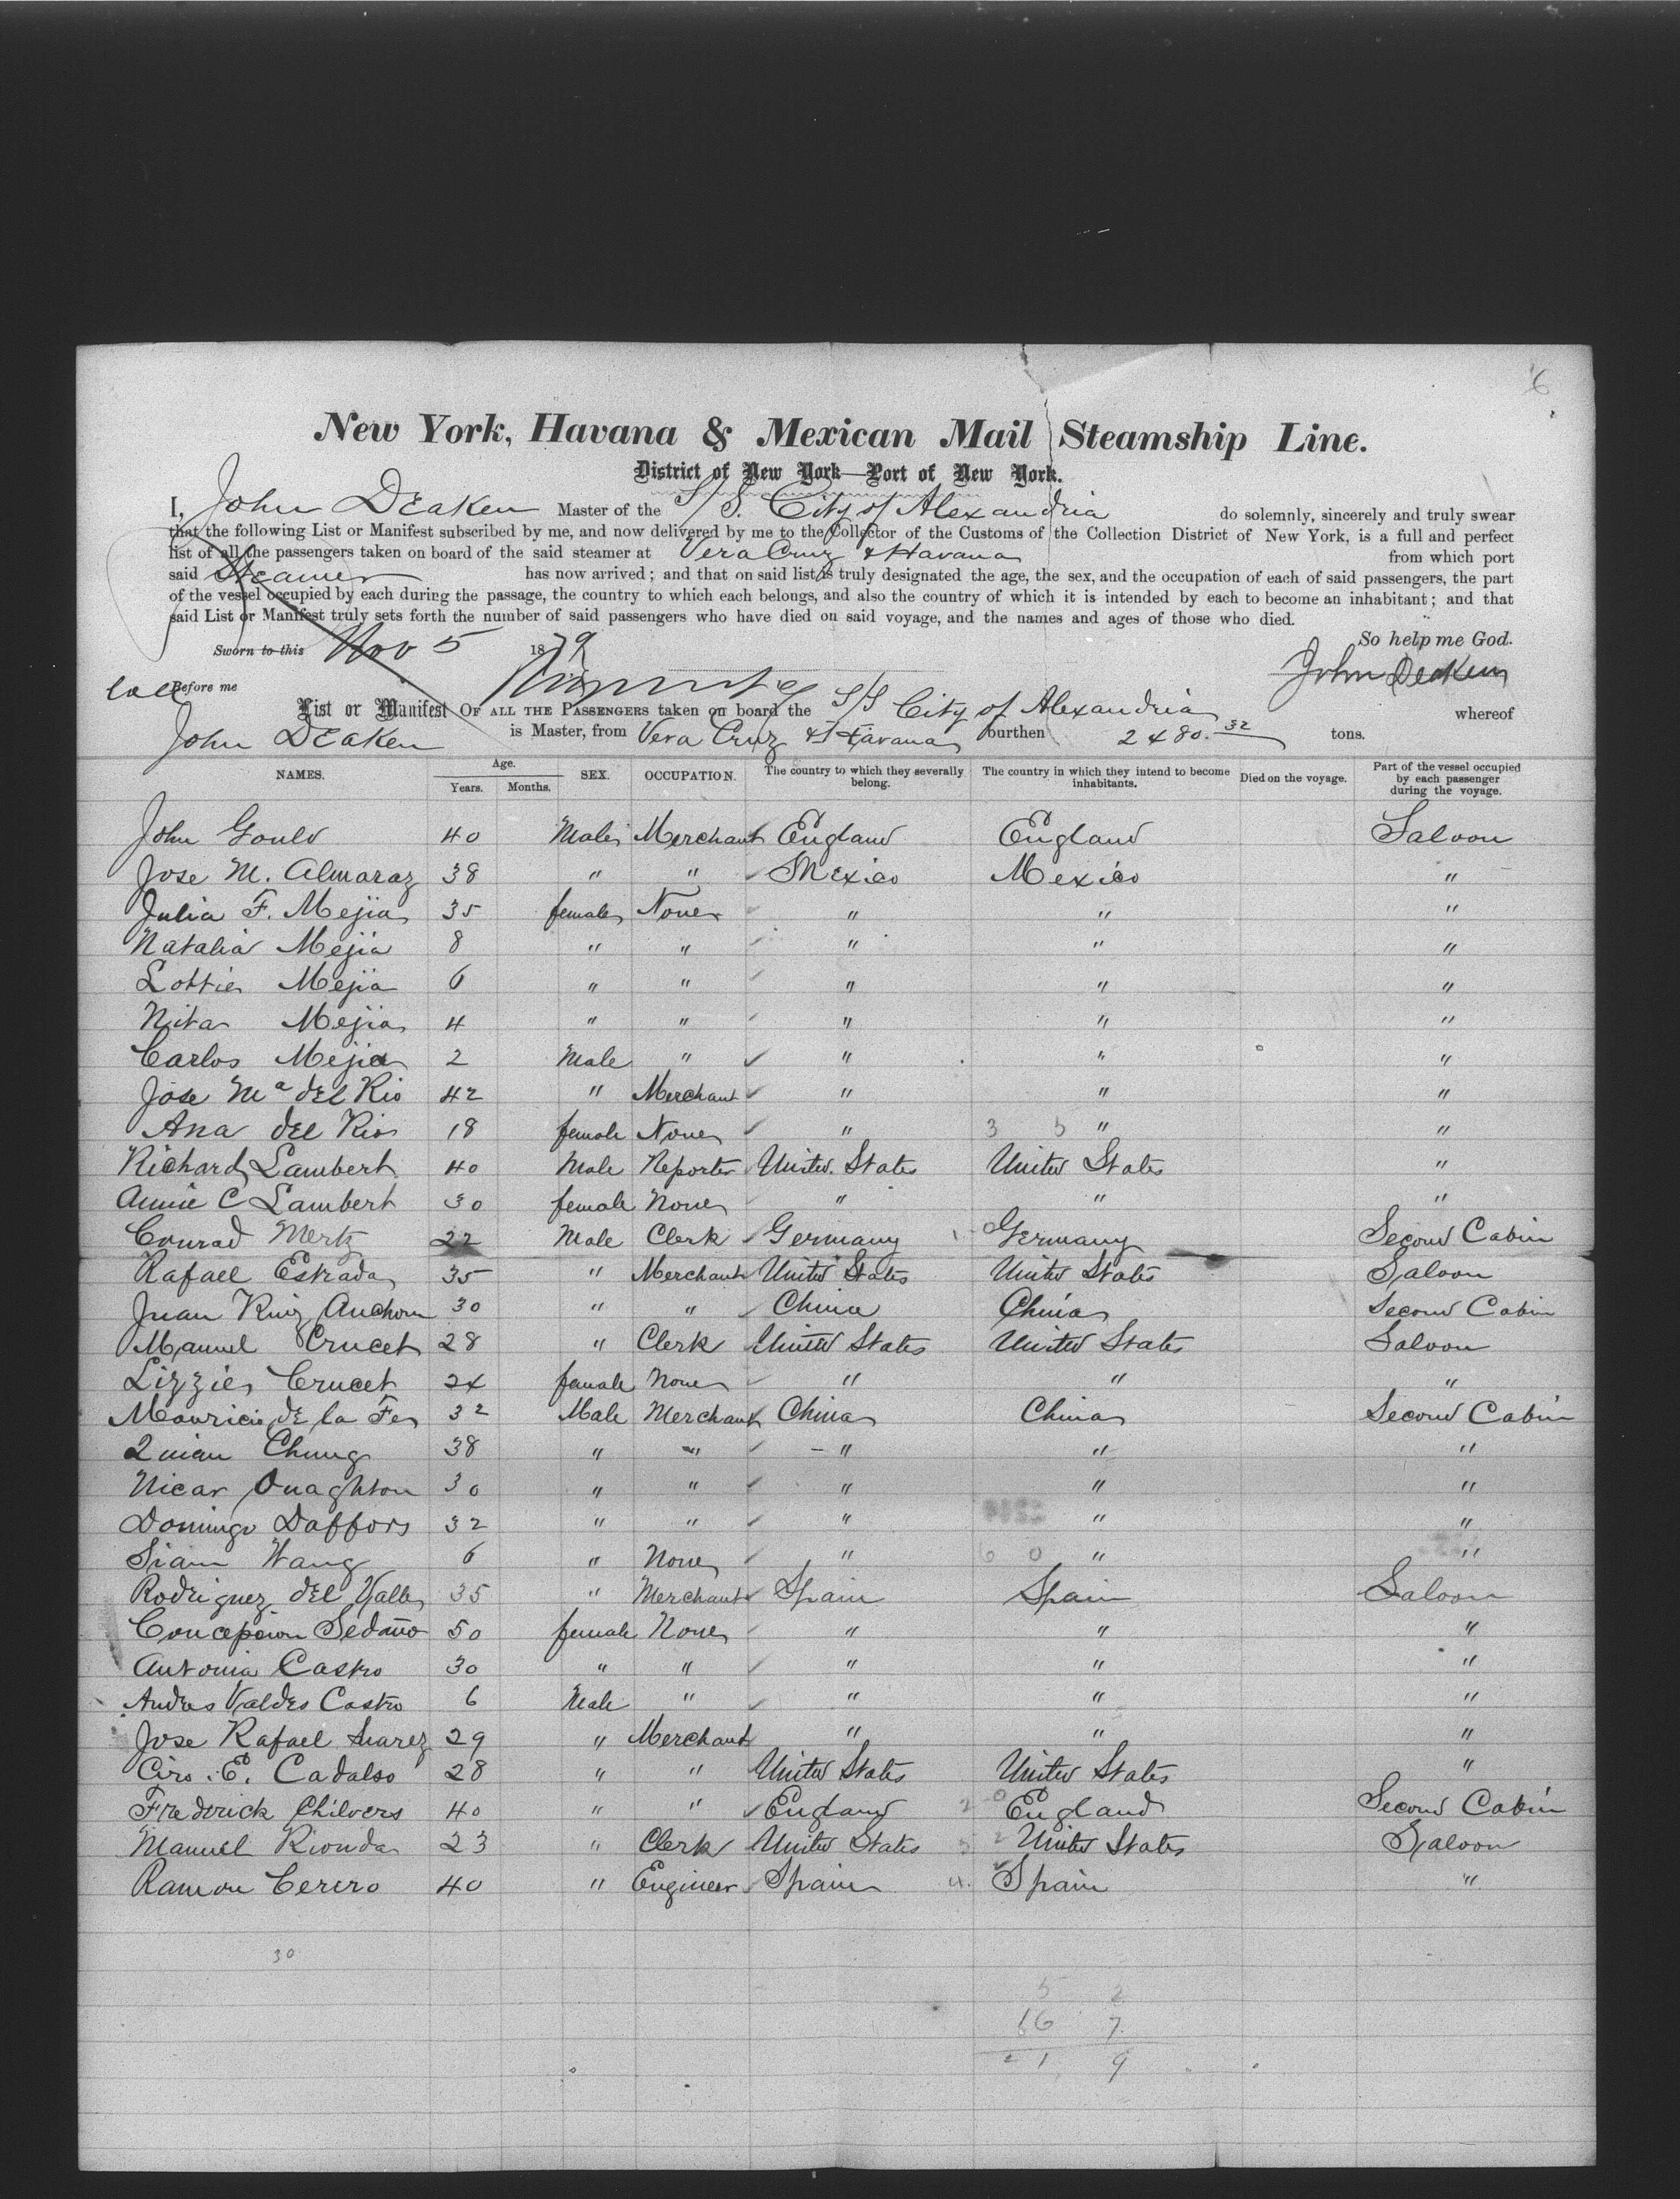 6
New York, Havana & Mexican Mail Steamship Line.
District of New York—Port of New York.
I, John Deaken Master of the S/S. City of Alexandria do solemnly, sincerely and truly swear
that the following List or Manifest subscribed by me, and now delivered by me to the Collector of the Customs of the Collection District of New York, is a full and perfect
list of all the passengers taken on board of the said steamer at Vera Cruz & Havana from which port
said Steamer has now arrived; and that on said list is truly designated the age, the sex, and the occupation of each of said passengers, the part
of the vessel occupied by each during the passage, the country to which each belongs, and also the country of which it is intended by each to become an inhabitant; and that
said List or Manifest truly sets forth the number of said passengers who have died on said voyage, and the names and ages of those who died.
So help me God.
Sworn to this Nov 5 1879
John Deaken
Before me
List or Manifest OF ALL THE PASSENGERS taken on board the S/S City of Alexandria whereof
John Deaken is Master, from Vera Cruz & Havana burthen 2480.32 tons.
NAMES. Age. Years. Months. SEX. OCCUPATION. The country to which they severally belong. The country in which they intend to become inhabitants. Died on the voyage. Part of the vessel occupied by each passenger during the voyage.
John Gould 40 Male Merchant England England Saloon
Jose M. Almaraz 38 " " Mexico Mexico "
Julia F. Mejia 35 female None " " "
Natalia Mejia 8 " " " " "
Lottie Mejia 6 " " " " "
Nita Mejia 4 " " " " "
Carlos Mejia 2 Male " " " "
Jose Ma del Rio 42 " Merchant " " "
Ana del Rio 18 female None " 3 5 " "
Richard Lambert 40 Male Reporter United States United States "
Annie C Lambert 30 female None " " "
Conrad Mertz 22 Male Clerk Germany Germany Second Cabin
Rafael Estrada 35 " Merchant United States United States Saloon
Juan Ruiz Anchom 30 " " China China Second Cabin
Manuel Crucet 28 " Clerk United States United States Saloon
Lizzie Crucet 24 female None " " "
Mauricio de la Fe 32 Male Merchant China China Second Cabin
Quian Chung 38 " " " " "
Nicar Onaghton 30 " " " " "
Domingo Daffors 32 " " " " "
Siam Wang 6 " None " 6 0 " "
Rodriguez del Valle 35 " Merchant Spain Spain Saloon
Concepcion Sedano 50 female None " " "
Antonia Castro 30 " " " " "
Andres Valdes Castro 6 Male " " " "
Jose Rafael Suarez 29 " Merchant " " "
Ciro. E. Cadalso 28 " " United States United States "
Frederick Chilvers 40 " " England 2 0 England Second Cabin
Manuel Rionda 23 " Clerk United States 3 2 United States Saloon
Ramon Cerero 40 " Engineer Spain 4. Spain "
30
5 2
16 7
21 9